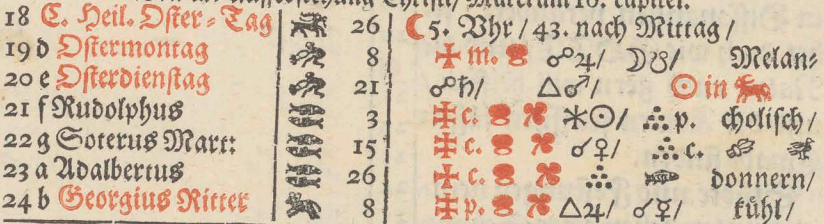 18 C. Heil. Oster-Tag 26 ☾ 5. Vhr / 43. nach Mittag /
19 d Ostermontag 8 m. ☍♃/ ☽☋/ Melan-
20 e Osterdienstag 21 ☍♄/ △♂/ ☉ in
21 f Rudolphus 3 c. ⚹☉/ p. cholisch /
22 g Soterus Mart: 15 c. ☌♀/ c.
23 a Adalbertus 26 c. donnern /
24 b Georgius Ritter 8 p. △♃/ ☌☿/ kühl /